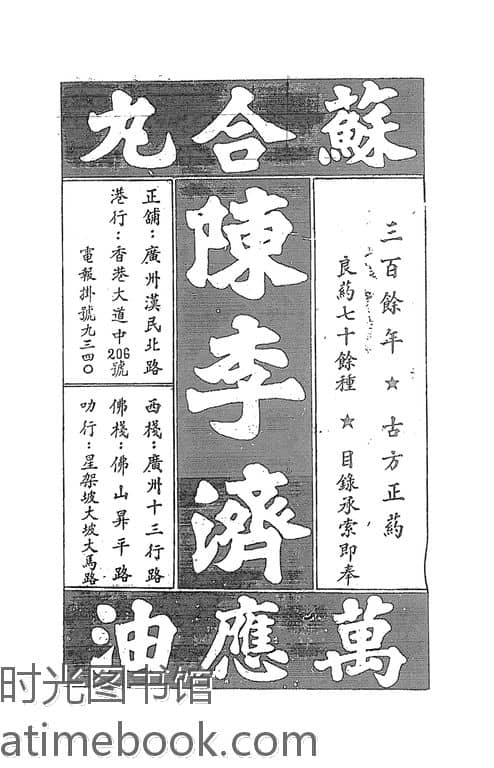 蘇合丸
三百餘年 ☆ 古方正药
良药七十餘種 ☆ 目錄承索即奉
陳李濟
正舖：廣州漢民北路
港行：香港大道中206號
電報掛號九三四〇
西棧：廣州十三行路
佛棧：佛山昇平路
叻行：星架坡大坡大馬路
萬應油
时光图书馆
atimebook.com